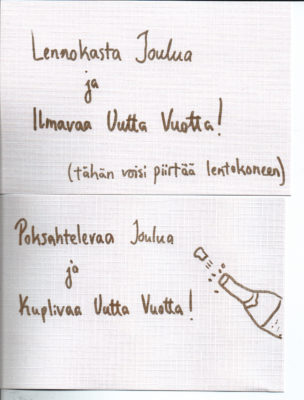 Lennokasta Joulua
ja
Ilmavaa Uutta Vuotta!
(tähän voisi piirtää lentokoneen)
Poksahtelevaa Joulua
ja
Kuplivaa Uutta Vuotta!